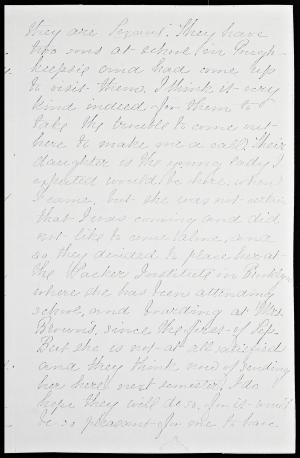 they are Servant. They have
two sons at school in Pough-
keepsie and had come up
to visit them. I think it very
kind indeed for them to
take the trouble to come out
here to make me a call. Their
daughter is the young lady I
expected would be here, when
I came, but she was not certain
that I was coming and did
not like to come alone, and
so they decided to place her at
the Packer Institute in Brooklyn
where she has been attending
school, and boarding at Mrs.
Browns, since the first of Sep.
But she is not at all satisfied
and they think now of sending
her here next semester. I do
hope they will do so, for it would
be so pleasant for me to have